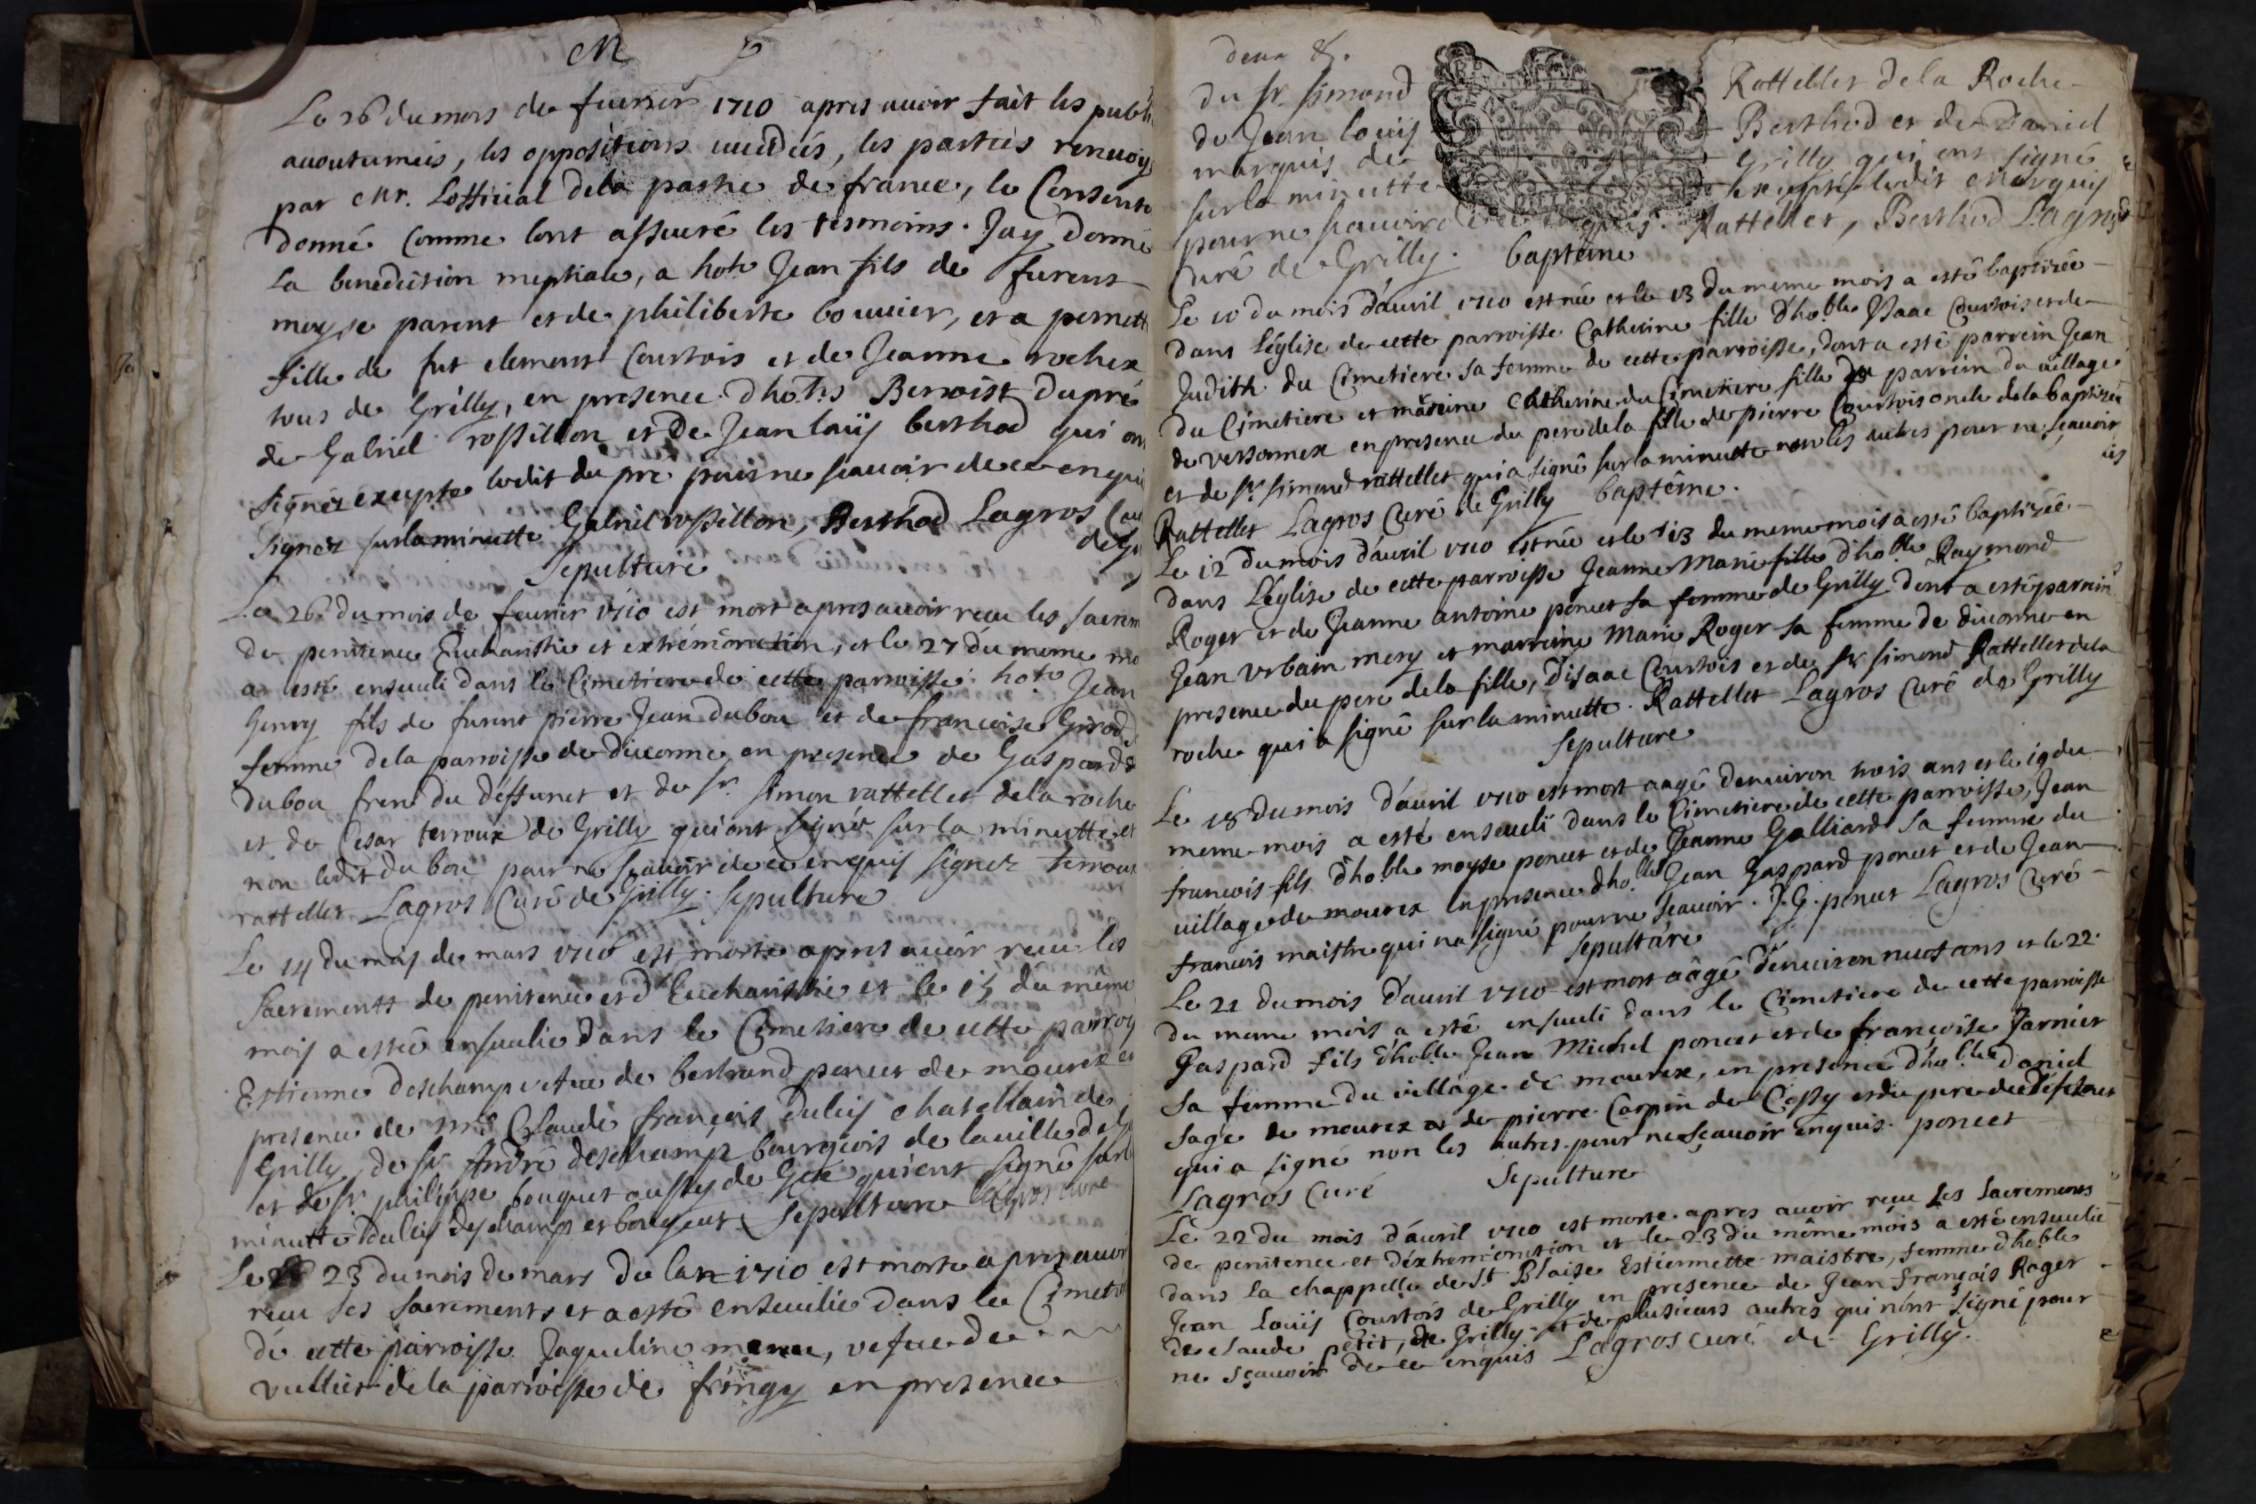 M
Le 26 du mois de fevrier 1710 apres avoir fait les publi
acoutumeés, les oppositions vuideés, les parties renvoyé
par Mr. Lofficial dela partie de france, le Consente
donné Comme lont assuré les tesmoins. Jay Donné
La benediction nuptiale, a hote Jean fils de furent
moyse parent et de philiberte bouvier, et a pernett
fille de fut clement Courtois et de Jeanne rochex
tous de Grilly, en presence dhotes Benoist Dupré
de Gabriel rossillon et De Jean louÿ berthod qui on
signéz éxcepte ledit du pre pour ne scavoir de ce enqui
signez surlaminutte Gabriel rossillon, Berthod Lagros Cu
de Gr
Sepulture
Le 26 du mois de fevrier 1710 est mort apres avoir receu les sacrem
De penitence Eucharistie et extrémonction, et le 27 du meme mo
a esté enseveli dans le Cimetiere de cette parroisse hote Jean
henry fils de furent pierre Jean Dubou et de francoise Girod
femme dela parroisse de divonne en presence de Gaspard
dubou frere du deffunct et de sr. simon rattellet dela roche
et de Cesar terroux de Grilly qui ont signé sur la minutte et
non ledit dubou pour ne scavoir de ce enquis signez terroux
rattellet Lagros Curé de Grilly. sepulture
Le 14 du mois de mars 1710 est morte apres avoir receu les
Sacrements de penitence et d'Eucharistie et le 15 du même
mois a esteé ensevelie dans le Cimetiere de cette parroi
Estienne deschamp vefve de bertrand poncet de mourex en
presence de mre Claude françois duley chatellain de
Grilly, de sr André deschamp bourgeois de laville de G
et de sr philippe bouquet aussy de Gex qui ont signé surl
minutte duley deschamp et bouquet Sepulture Lagros curé
Le 23 du mois de mars de lan 1710 est morte apres avoir
receu les sacrements et a esté ensevelie dans le Cimeti
de cette parroisse Jaqueline , vefve de
vulliet de la parroisse de fringy en presence
deux &.
du sr. simond Rattellet de la Roche
de Jean louis Berthod et de Daniel
marquis de Grilly qui ont signé
sur la minutte excepté ledit Marquis
pour ne scavoir de ce enquis. Rattellet, Berthod Lagros
Curé de Grilly. baptéme
Le 10 du mois d'avril 1710 est née et le 13 du meme mois a esté baptizée
dans L'église de cette parroisse Catherine fille d'hoble Isaac Courtois et de
Judith du Cimetiere sa femme de cette parroisse, dont a esté parrein Jean
du Cimetiere et mareine Catherine du Cimetiere fille du parrein du village
de versonnex en presence du pere de la fille de pierre Courtois oncle de la baptizée
et de sr. simond rattellet qui a signé sur la minutte non les autres pour ne sçavoir
Rattellet Lagros Curé de Grilly baptéme.
Le 12 du mois d'avril 1710 est née et le 13 du meme mois a esté baptizée
dans L'église de cette parroisse Jeanne Marie fille d'hoble Raymond
Roger et de Jeanne antoine poncet sa femme de Grilly dont a esté parrein
Jean Urbain mery et marreine Marie Roger sa femme de divonne en
presence du pere de la fille, d'isaac Courtois et de sr. simond Rattellet de la
roche qui a signé sur la minutte. Rattellet Lagros Curé de Grilly
Sepulture
Le 18 du mois d'avril 1710 est mort aagé denviron trois ans et le 19 du
meme mois a esté enseveli dans le Cimetiere de cette parroisse, Jean
francois fils d'hoble moyse poncet et de Jeanne Galliard sa femme du
village de mourex en presence d'hobles Jean Gaspard poncet et de Jean
francois maistre qui na signé pour ne sçavoir. J. G. poncet Lagros Curé
Sepulture
Le 21 du mois d'avril 1710 est mort aâgé denviron neuf ans et le 22.
du meme mois a esté enseveli dans le Cimetiere de cette parroisse
Gaspard fils d'hoble Jean Michel poncet et de françoise Jarnier
sa femme du village de mourex, en presence d'hobles Daniel
sage de mourex et de pierre Carpin de Cessy et du pere du defunct
qui a signé non les autres pour ne sçavoir enquis. poncet
Lagros Curé Sepulture
Le 22 du mois d'avril 1710 est morte apres avoir receu Les Sacrements
de penitence et d'éxtremonction et le 23 du même mois a esté ensevelie
dans la chappelle de St Blaise Estiennette maistre, femme d'hoble
Jean Louïs Courtois de Grilly en presence de Jean François Roger
de claude petit, de Grilly et de plusieurs autres qui n'ont signé pour
ne sçavoir de ce enquis Lagros curé de Grilly.